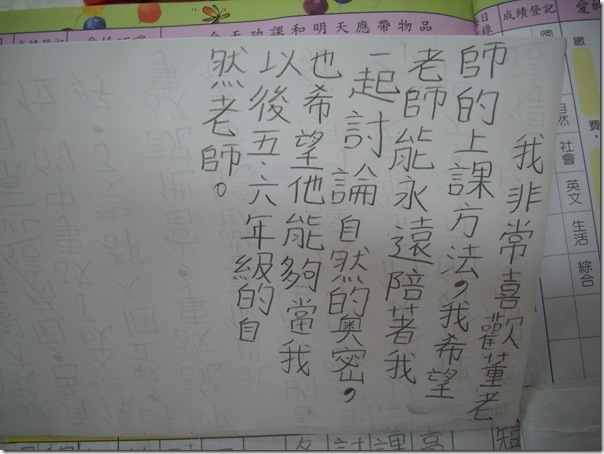 今天功課和明天應帶物品
成績登記
愛的
繳
費,
自然
社會
英文
生活
綜合
我非常喜歡董老
師的上課方法,我希望
老師能永遠陪著我
一起討論自然的奧密,
也希望他能夠當我
以後五、六年級的自
然老師。